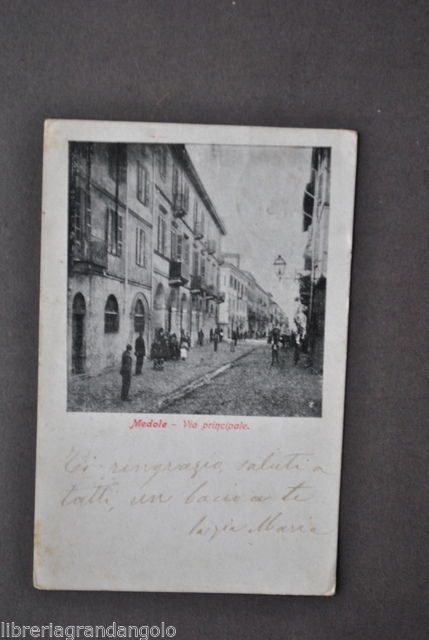 Medole - Via principale.
Ti ringrazio, saluti a
tutti, un bacio a te
la zia Maria
libreriagrandangolo